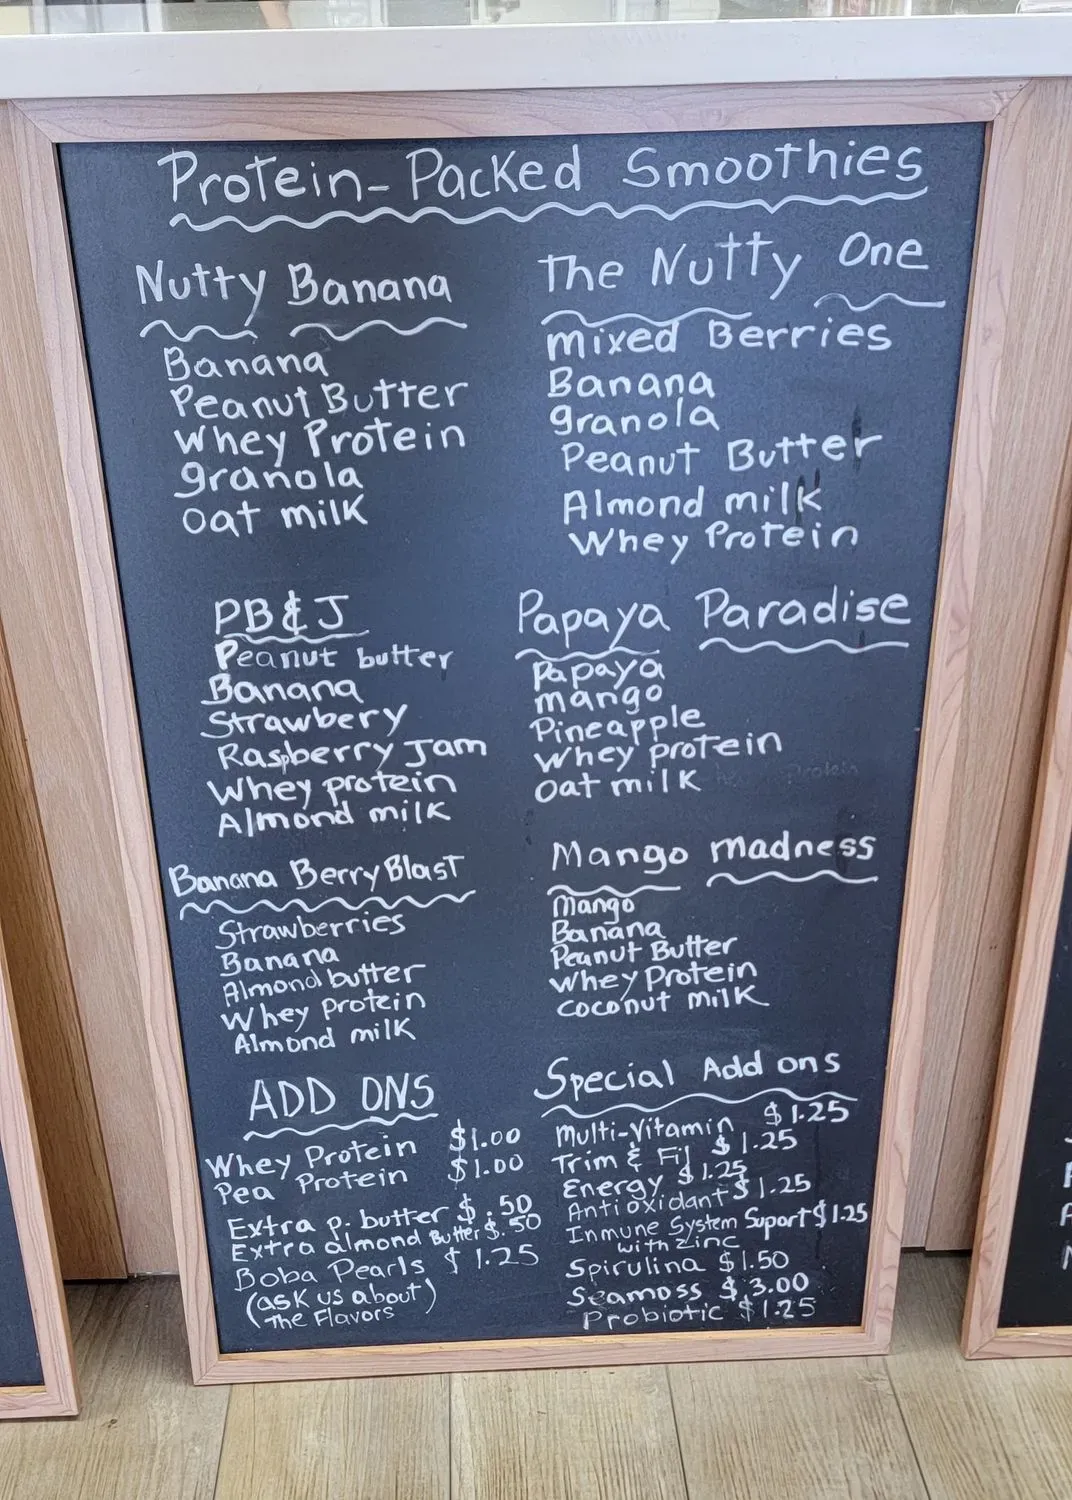 Protein-Packed Smoothies
Nutty Banana
Banana
Peanut Butter
Whey Protein
granola
oat milk
The Nutty One
mixed Berries
Banana
granola
Peanut Butter
Almond milk
Whey Protein
PB & J
Peanut butter
Banana
Strawbery
Raspberry Jam
Whey protein
Almond milk
Papaya Paradise
Papaya
mango
Pineapple
Whey protein
oat milk
Banana Berry Blast
Strawberries
Banana
Almond butter
Whey Protein
Almond milk
Mango madness
Mango
Banana
Peanut Butter
Whey Protein
coconut milk
ADD ONS
Whey Protein $1.00
Pea Protein $1.00
Extra p. butter $.50
Extra almond Butter $.50
Boba Pearls $1.25
(ask us about)
The Flavors
Special Add ons
Multi-Vitamin $1.25
Trim & Fil $1.25
Energy $1.25
Antioxidant $1.25
Inmune System Suport $1.25
with zinc
Spirulina $1.50
Seamoss $3.00
Probiotic $1.25